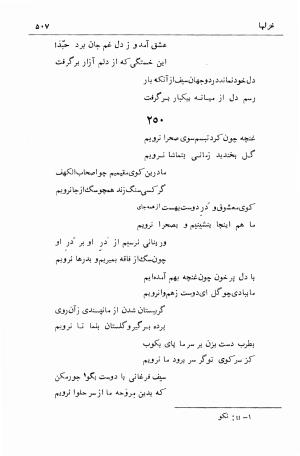 غزلها
۵۰۷
عشق آمد و ز دل غم جان برد حبّذا
این خستگی که از دلم آزار برگرفت
دل خود نماند در دو جهان سیف از آنکه یار
رسم دل از میانه بیکبار برگرفت
۲۵۰
غنچه چون کرد تبسم سوی صحرا نرویم
گل بخندید زمانی بتماشا نرویم
ما درین کوی مقیمیم چو اصحاب الکهف
گر کسی سنگ زند همچو سگ از جا نرویم
کوی معشوق و در دوست بهست از همه جای
ما هم اینجا بنشینیم و بصحرا نرویم
ور بنانی نرسیم از در او بر در او
چون سگ از فاقه بمیریم و بدرها نرویم
با دل پر خون چون غنچه بهم آمده‌ایم
ما بباد‌ی چو گل ای دوست زهم وا نرویم
گر بستان شدن از ما نپسندی زآن روی
پرده برگیر و گلستان بنما تا نرویم
بطرب دست بزن بر سر ما پای بکوب
کز سر کوی تو گر سر برود ما نرویم
سیف فرغانی با دوست بگو: جور مکن
که بدین مروحه ما از سر حلوا نرویم
۱- II: نکو